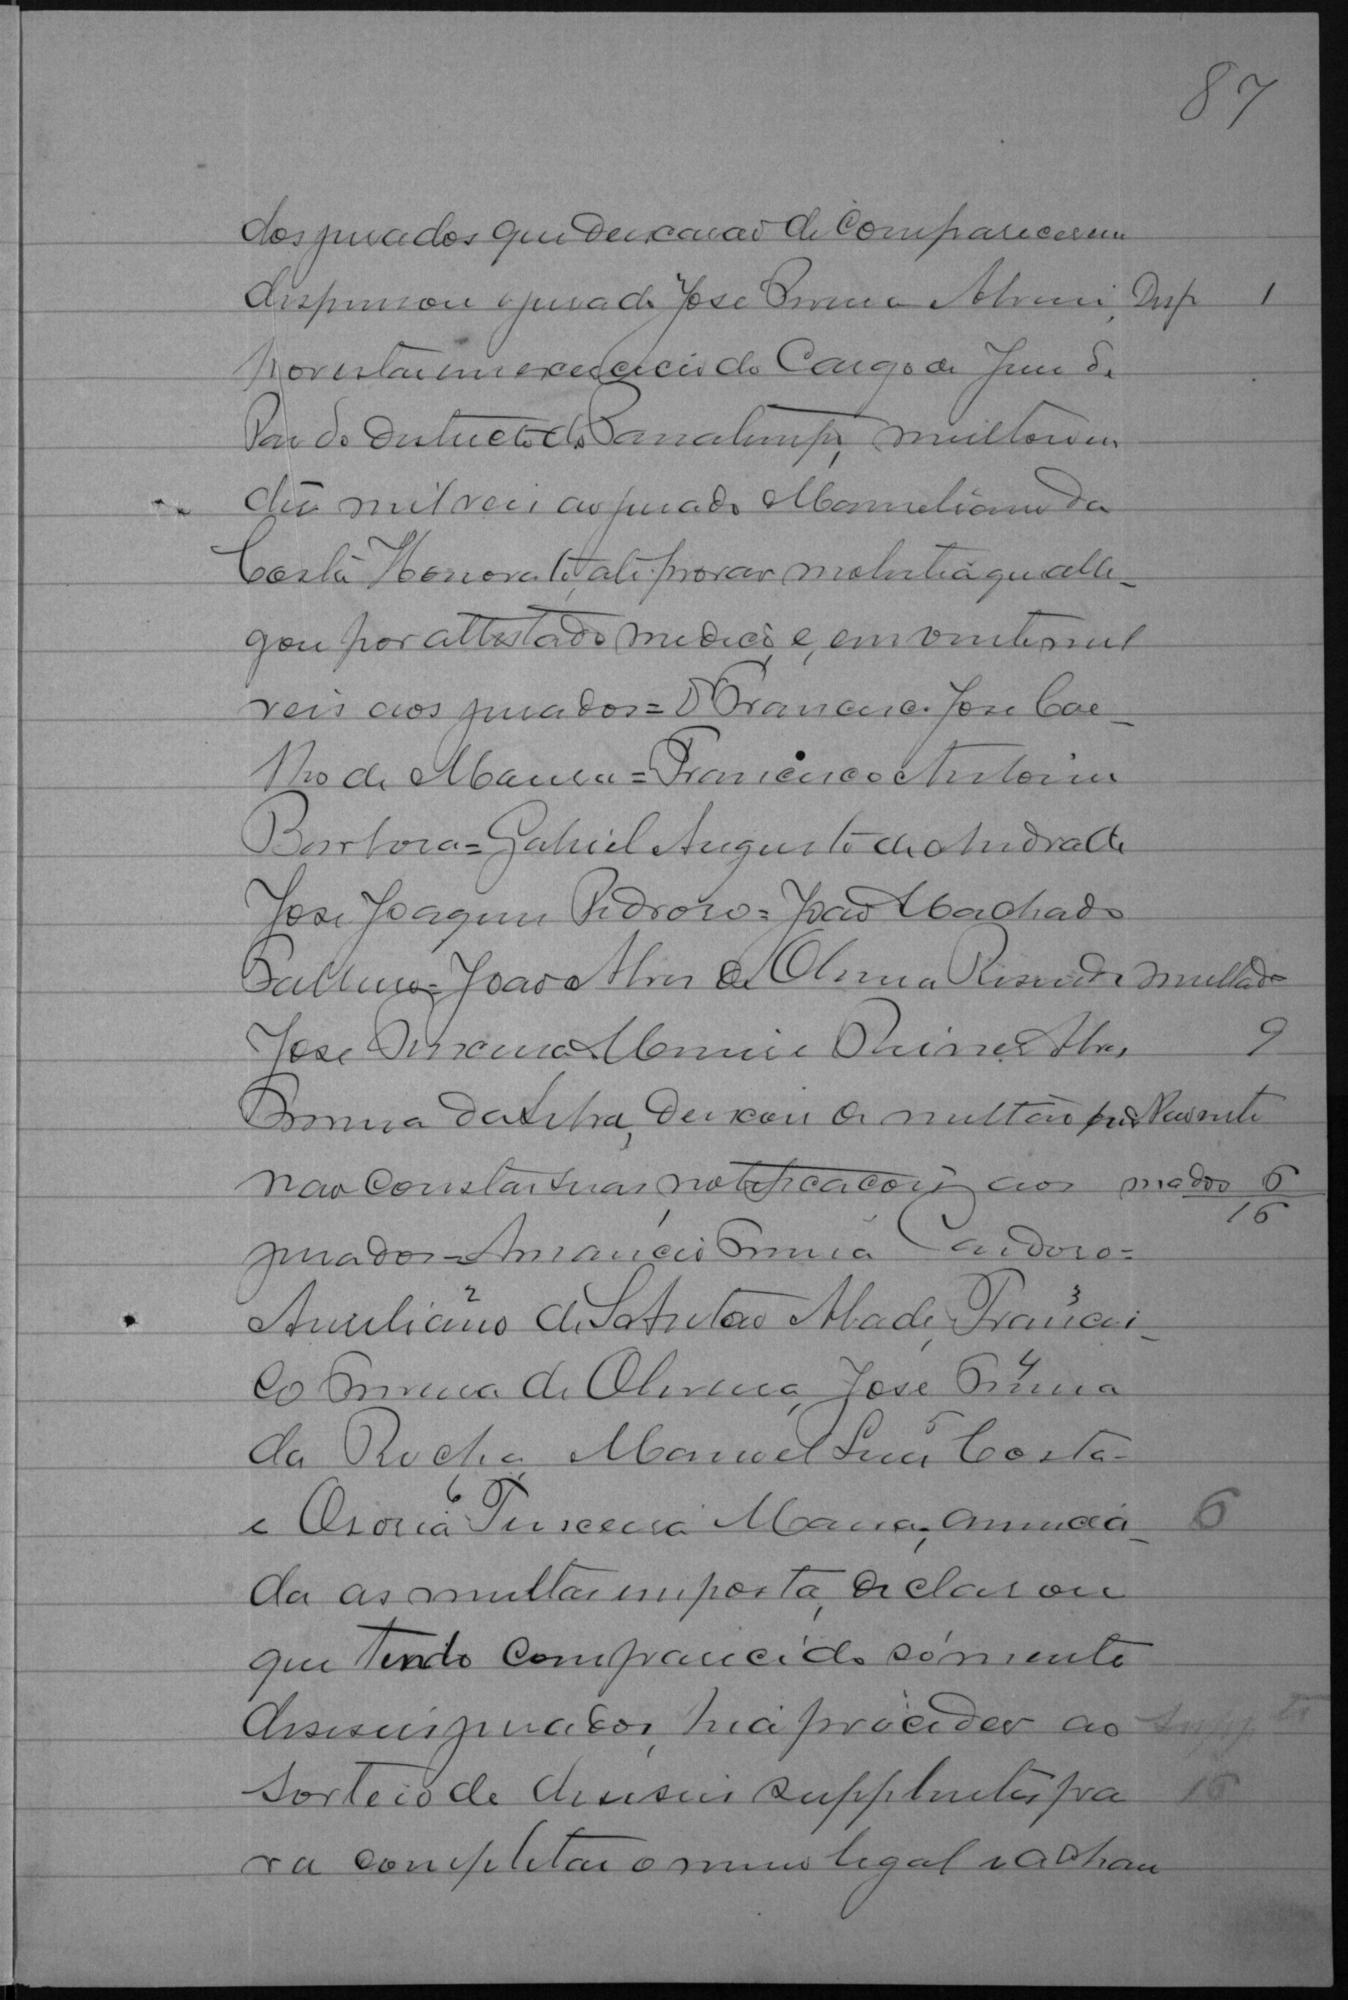 87
dos jurados que deixarão de comparecerem
dispensou o jurado Jose Pereira Disp 1
por estar em exercicio do Cargo de Juiz de
Paz do districto de multou em
dês mil reis ao jurado Maméliano da
Costa Honorato, até provar molestia que alle-
gou por attestado medico, e, em vinte mil
reis aos jurados = Francisco José Coe-
lho de Moura = Francisco Antonio
Barbosa = Gabriel Augusto de Andrade
Jose Joaquim Pedroso = João Machado
= João Alves de Oliveira Resende multados
Jose Alves 9
Pereira da Silva, deixou de multar por Não noti
não constar suas notificações aos mados 6
16
jurados = Amancio Pereira Cardoso =
2 3
Aureliano de Sto Antão Abade, Francis-
4
co Pereira de Oliveira, José Pereira
5
da Rocha, Manoel Luis Costa -
6
e Osorio Teixeira annuncia- 6
da as multas imposta, declarou
que tendo comparecido sómente
deseseis jurados, hia proceder ao supp tes
sorteio de deseseis supplentes pa 16
ra completar o numero legal e achan